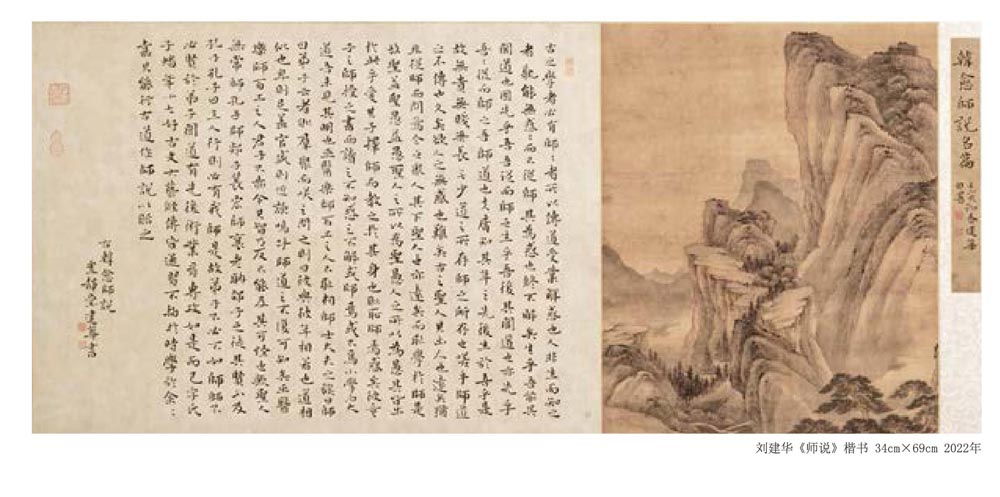 韓愈師說名篇
古之學者必有師々者所以傳道受業解惑也人非生而知之
者孰能無惑々而不從師其為惑也終不解矣生乎吾前其
聞道也固先乎吾吾從而師之生乎吾後其聞道也亦先乎
吾々從而師之吾師道也夫庸知其年之先後生於吾乎是
故無貴無賤無長無少道之所存師之所存也嗟乎師道
之不傳也久矣欲人之無惑也難矣古之聖人其出人也遠矣猶
且從師而問焉今之眾人其下聖人也亦遠矣而恥學於師是
故聖益聖愚益愚聖人之所以為聖愚人之所以為愚其皆出
於此乎愛其子擇師而教之於其身也則恥師焉惑矣彼童
子之師授之書而讀之不知惑之不解或師焉或不焉小學而大
遺吾未見其明也巫醫樂師百工之人不恥相師士大夫之族曰師
曰弟子云者則群聚而笑之問之則曰彼與彼年相若也道相
似也卑則足羞官盛則近諛嗚呼師道之不復可知矣巫醫
樂師百工之人君子不齒今其智乃反不能及其可怪也歟聖人
無常師孔子師郯子萇弘師襄老聃郯子之徒其賢不及
孔子孔子曰三人行則必有我師是故弟子不必不如師師不
必賢於弟子聞道有先後術業有專攻如是而已李氏
子蟠年十七好古文六藝經傳皆通習不拘於時學於余々
嘉其能行古道作師說以貽之
右韓愈師說
靜堂建華書
刘建华《师说》楷书 34cm×69cm 2022年